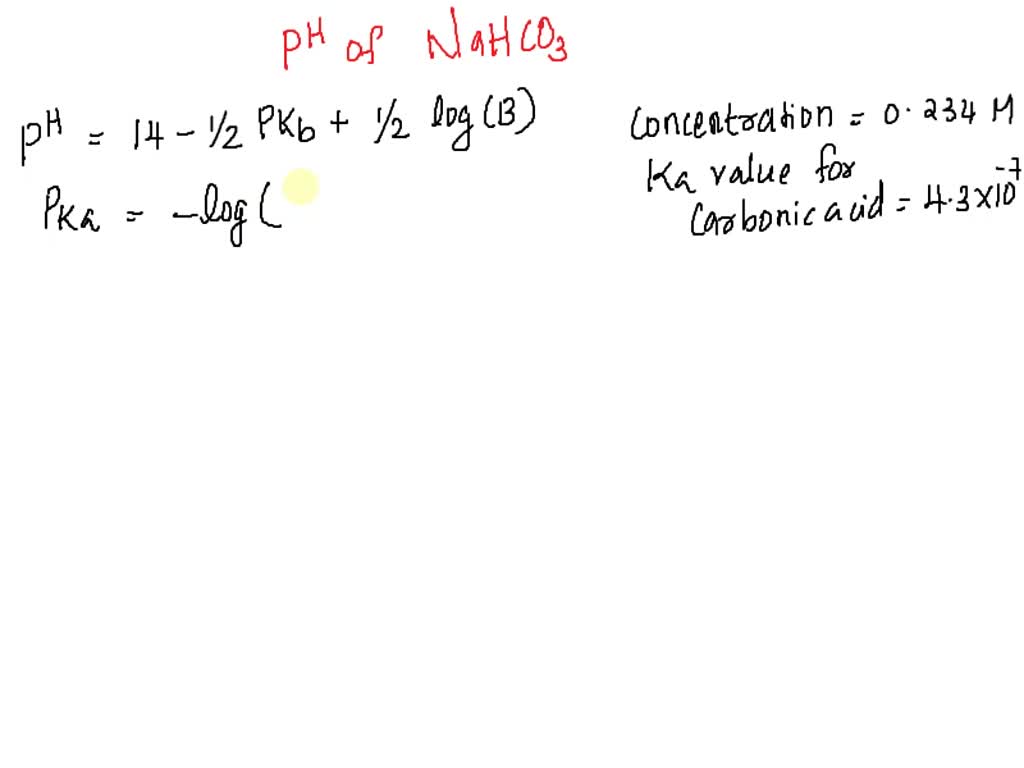 pH of NaHCO3
pH = 14 - 1/2 PKb + 1/2 log(B)
PKa = -log(
Concentration = 0.234 M
Ka value for
Carbonic acid = 4.3×10^-7